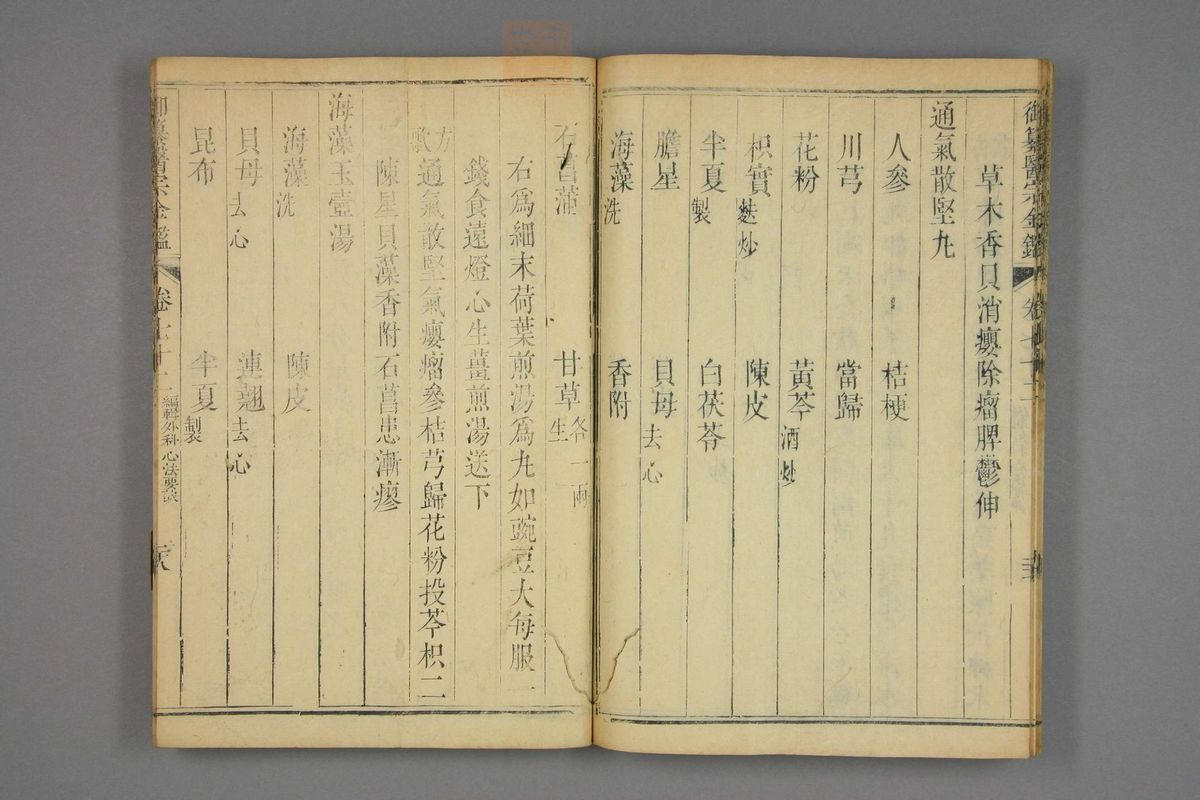 御纂醫宗金鑑 卷七十二
草木香貝消癭除瘤脾鬱伸
通氣散堅丸
人參 桔梗
川芎 當歸
花粉 黃芩酒炒
枳實麩炒 陳皮
半夏製 白茯苓
膽星 貝母去心
海藻洗 香附
石菖蒲 甘草生 各一兩
右爲細末荷葉煎湯爲丸如豌豆大每服一
錢食遠燈心生薑煎湯送下
方歌 通氣散堅氣癭瘤參桔芎歸花粉投芩枳二
陳星貝藻香附石菖患漸瘳
海藻玉壼湯
海藻洗 陳皮
貝母去心 連翹去心
昆布 半夏製
御纂醫宗金鑑 卷七十二 編輯外科心法要訣